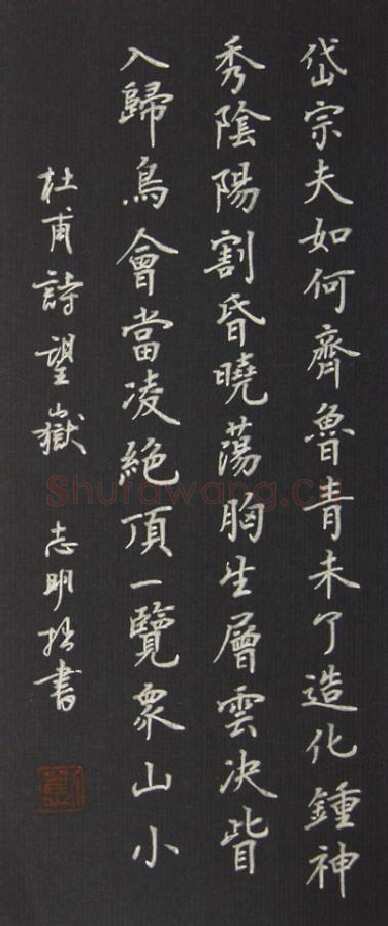 岱宗夫如何齊魯青未了造化鍾神
秀陰陽割昏曉蕩胸生層雲決眥
入歸鳥會當凌絕頂一覽衆山小
杜甫詩望嶽 志明拙書
Shufawang.cn